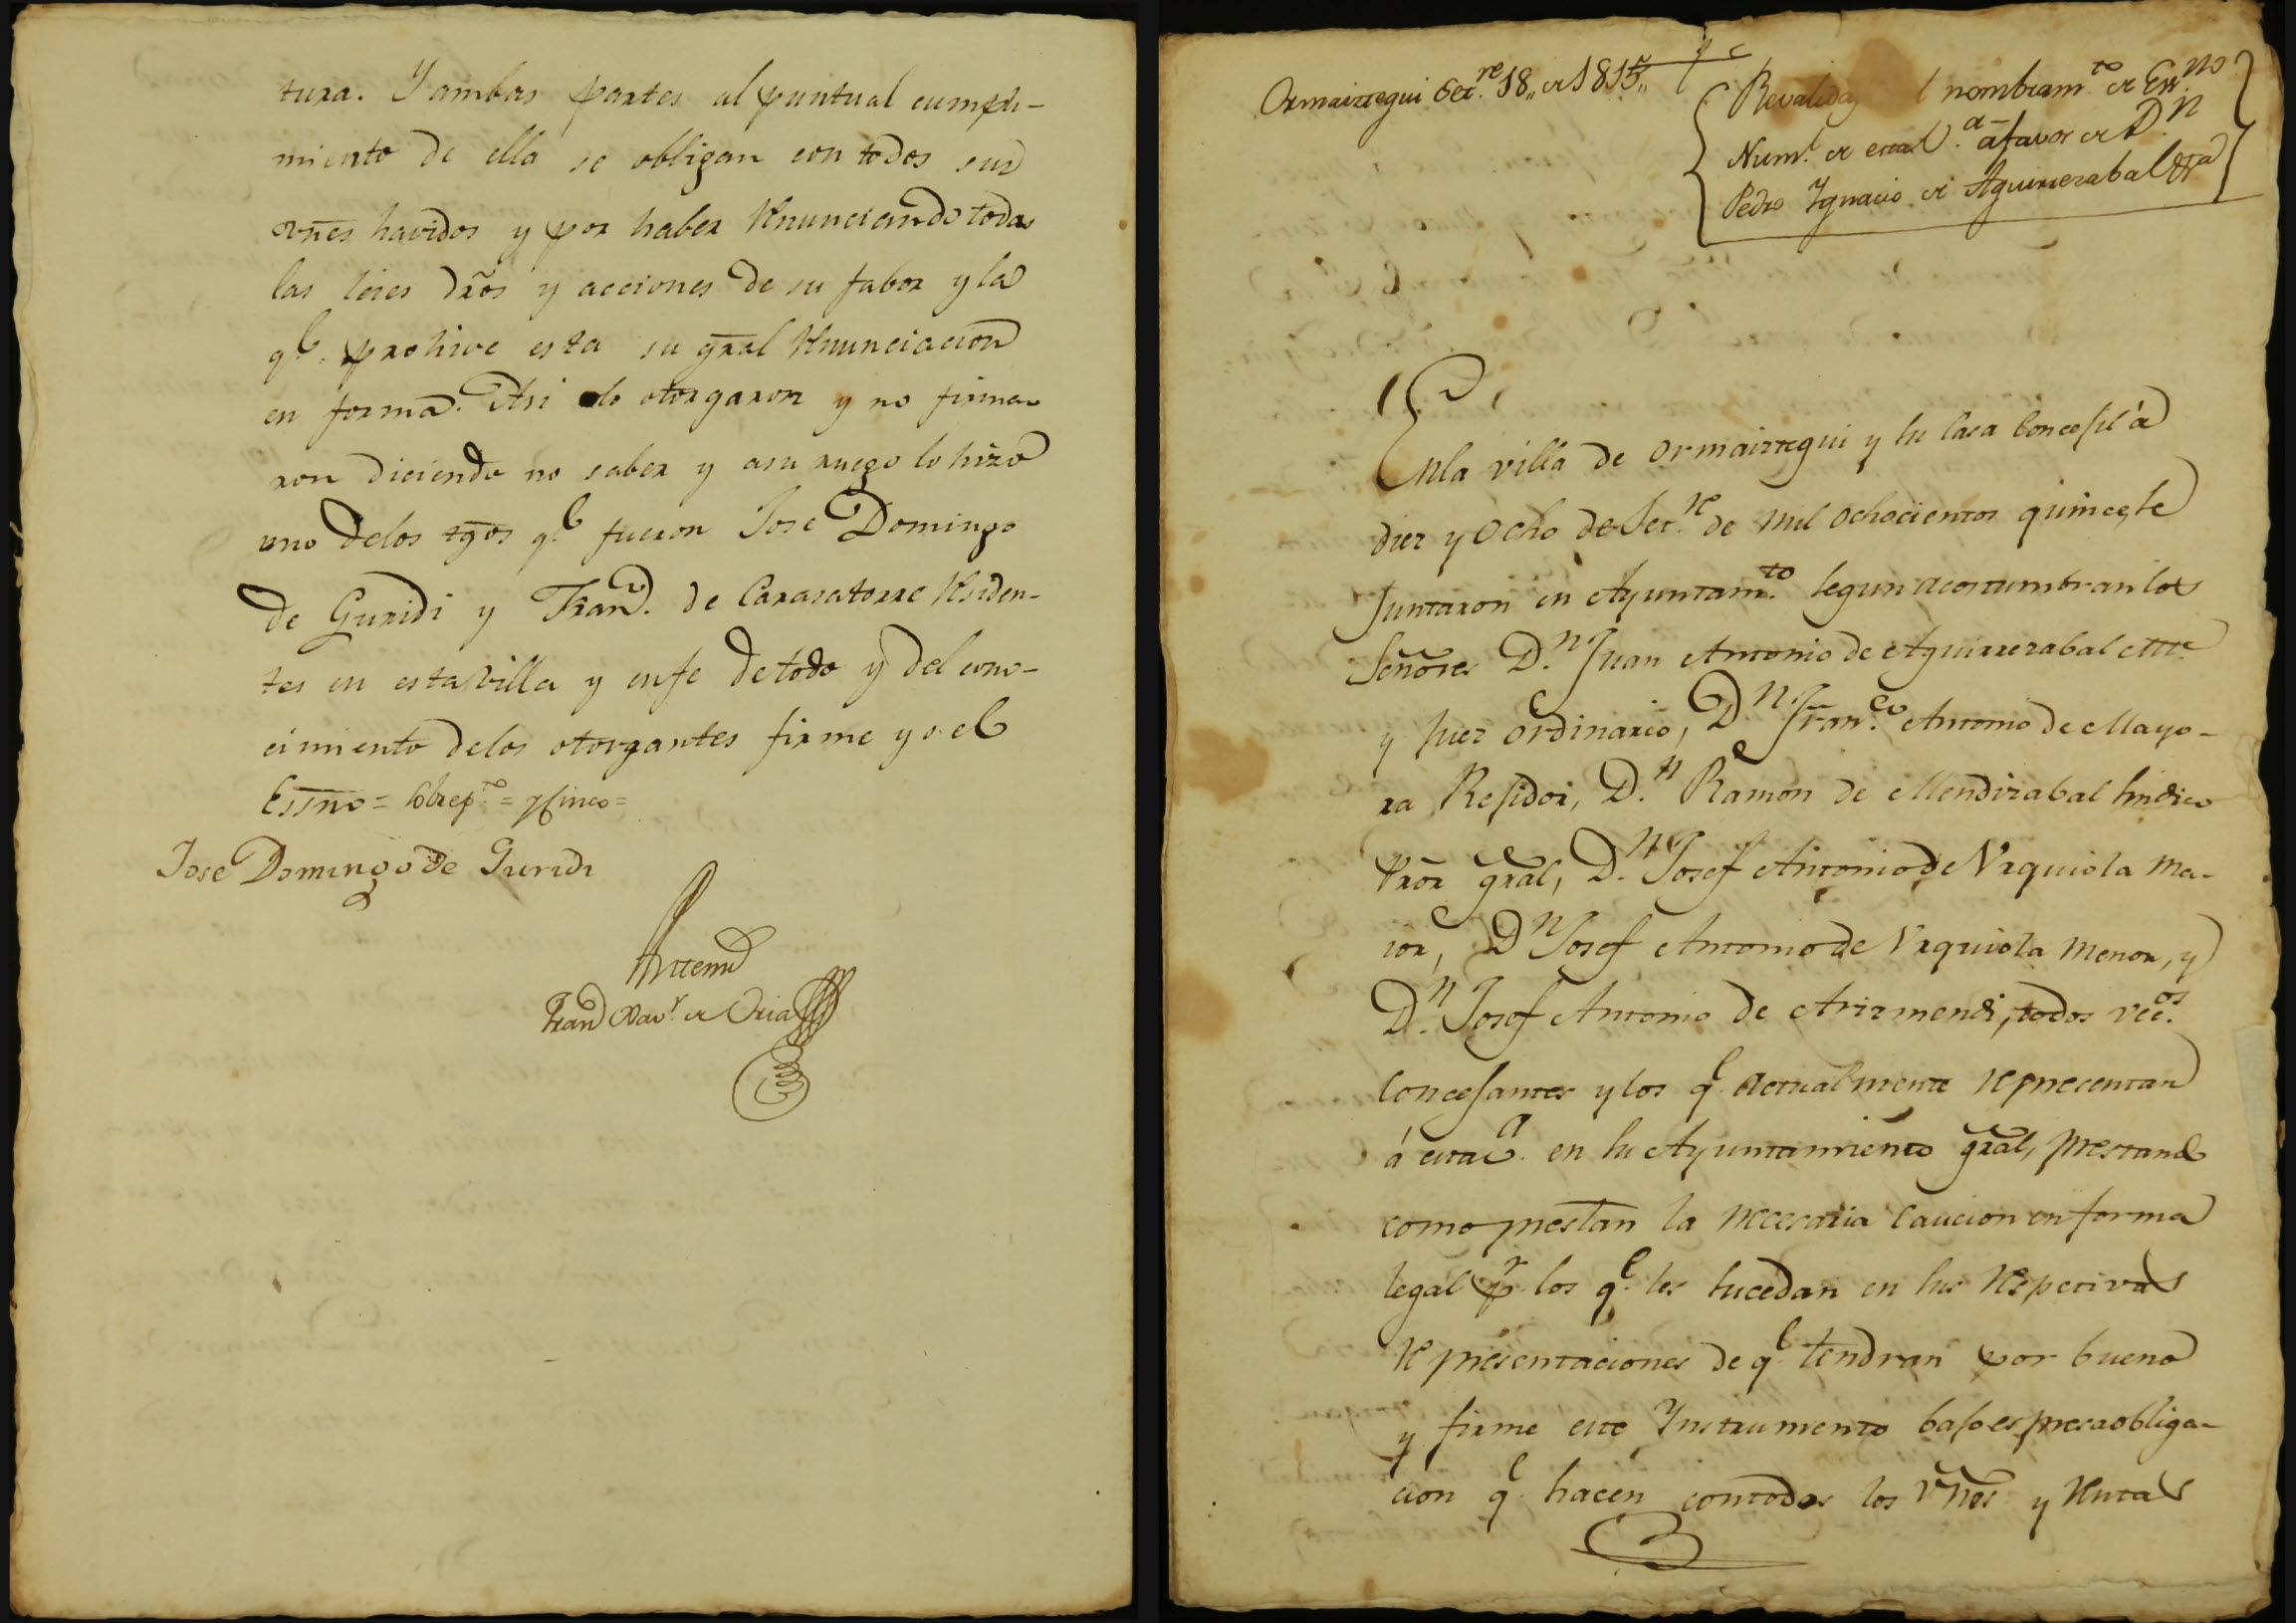 tura. Y ambas partes al puntual cumpli-
miento de ella se obligan con todos sus
vñes havidos y por haber Renunciando todas
las leies dr̃os y acciones de su fabor y la
qe. prohive esta su gr̃al Renunciacion
en forma. Asi lo otorgaron y no firma-
ron diciendo no saber y asu ruego lo hizo
uno delos tgos qe fueron Jose Domingo
de Guridi y Franco. de Carasatorre Residen-
tes en esta Villa y enfe detodo y del cono-
cimiento delos otorgantes firme yo el
Essño = Sobrepto = y cinco =
Jose Domingo de Guridi
Antemi
Franco Xavr. de Oria
Ormaiztegui Setre. 18,, de 1815,,
Revalidaz l nombramto. de Esno
Numl. de esta Va. afavor de Dn
Pedro Ygnacio de Aguirrezabal
Enla villa de Ormaiztegui y su Casa Concejil á
diez y Ocho de Setre. de mil ochocientos quince, se
Juntaron en Ayuntamto. segun acostumbran los
Señores Dn. Juan Antonio de Aguirrezabal Alce
y Juez ordinario, Dn. Franco. Antonio de Mayo-
ra Rejidor, Dn. Ramon de Mendizabal Sindico
Pr̃or gr̃al, Dn. Josef Antonio de Urquiola Ma-
ior, Dn Josef Antonio de Urquiola Menor, y
Dn. Josef Antonio de Arizmendi, todos vecos.
Concejantes y los qe actualmente representan
á esta Va. en su Ayuntamiento gr̃al, prestando
como prestan la necesaria caucion en forma
legal pr. los qe. les sucedan en sus Respectivas
Representaciones de qe. tendran por bueno
y firme este Ynstrumento bajo espresa obliga-
cion qe. hacen contodos los vñes y Rentas